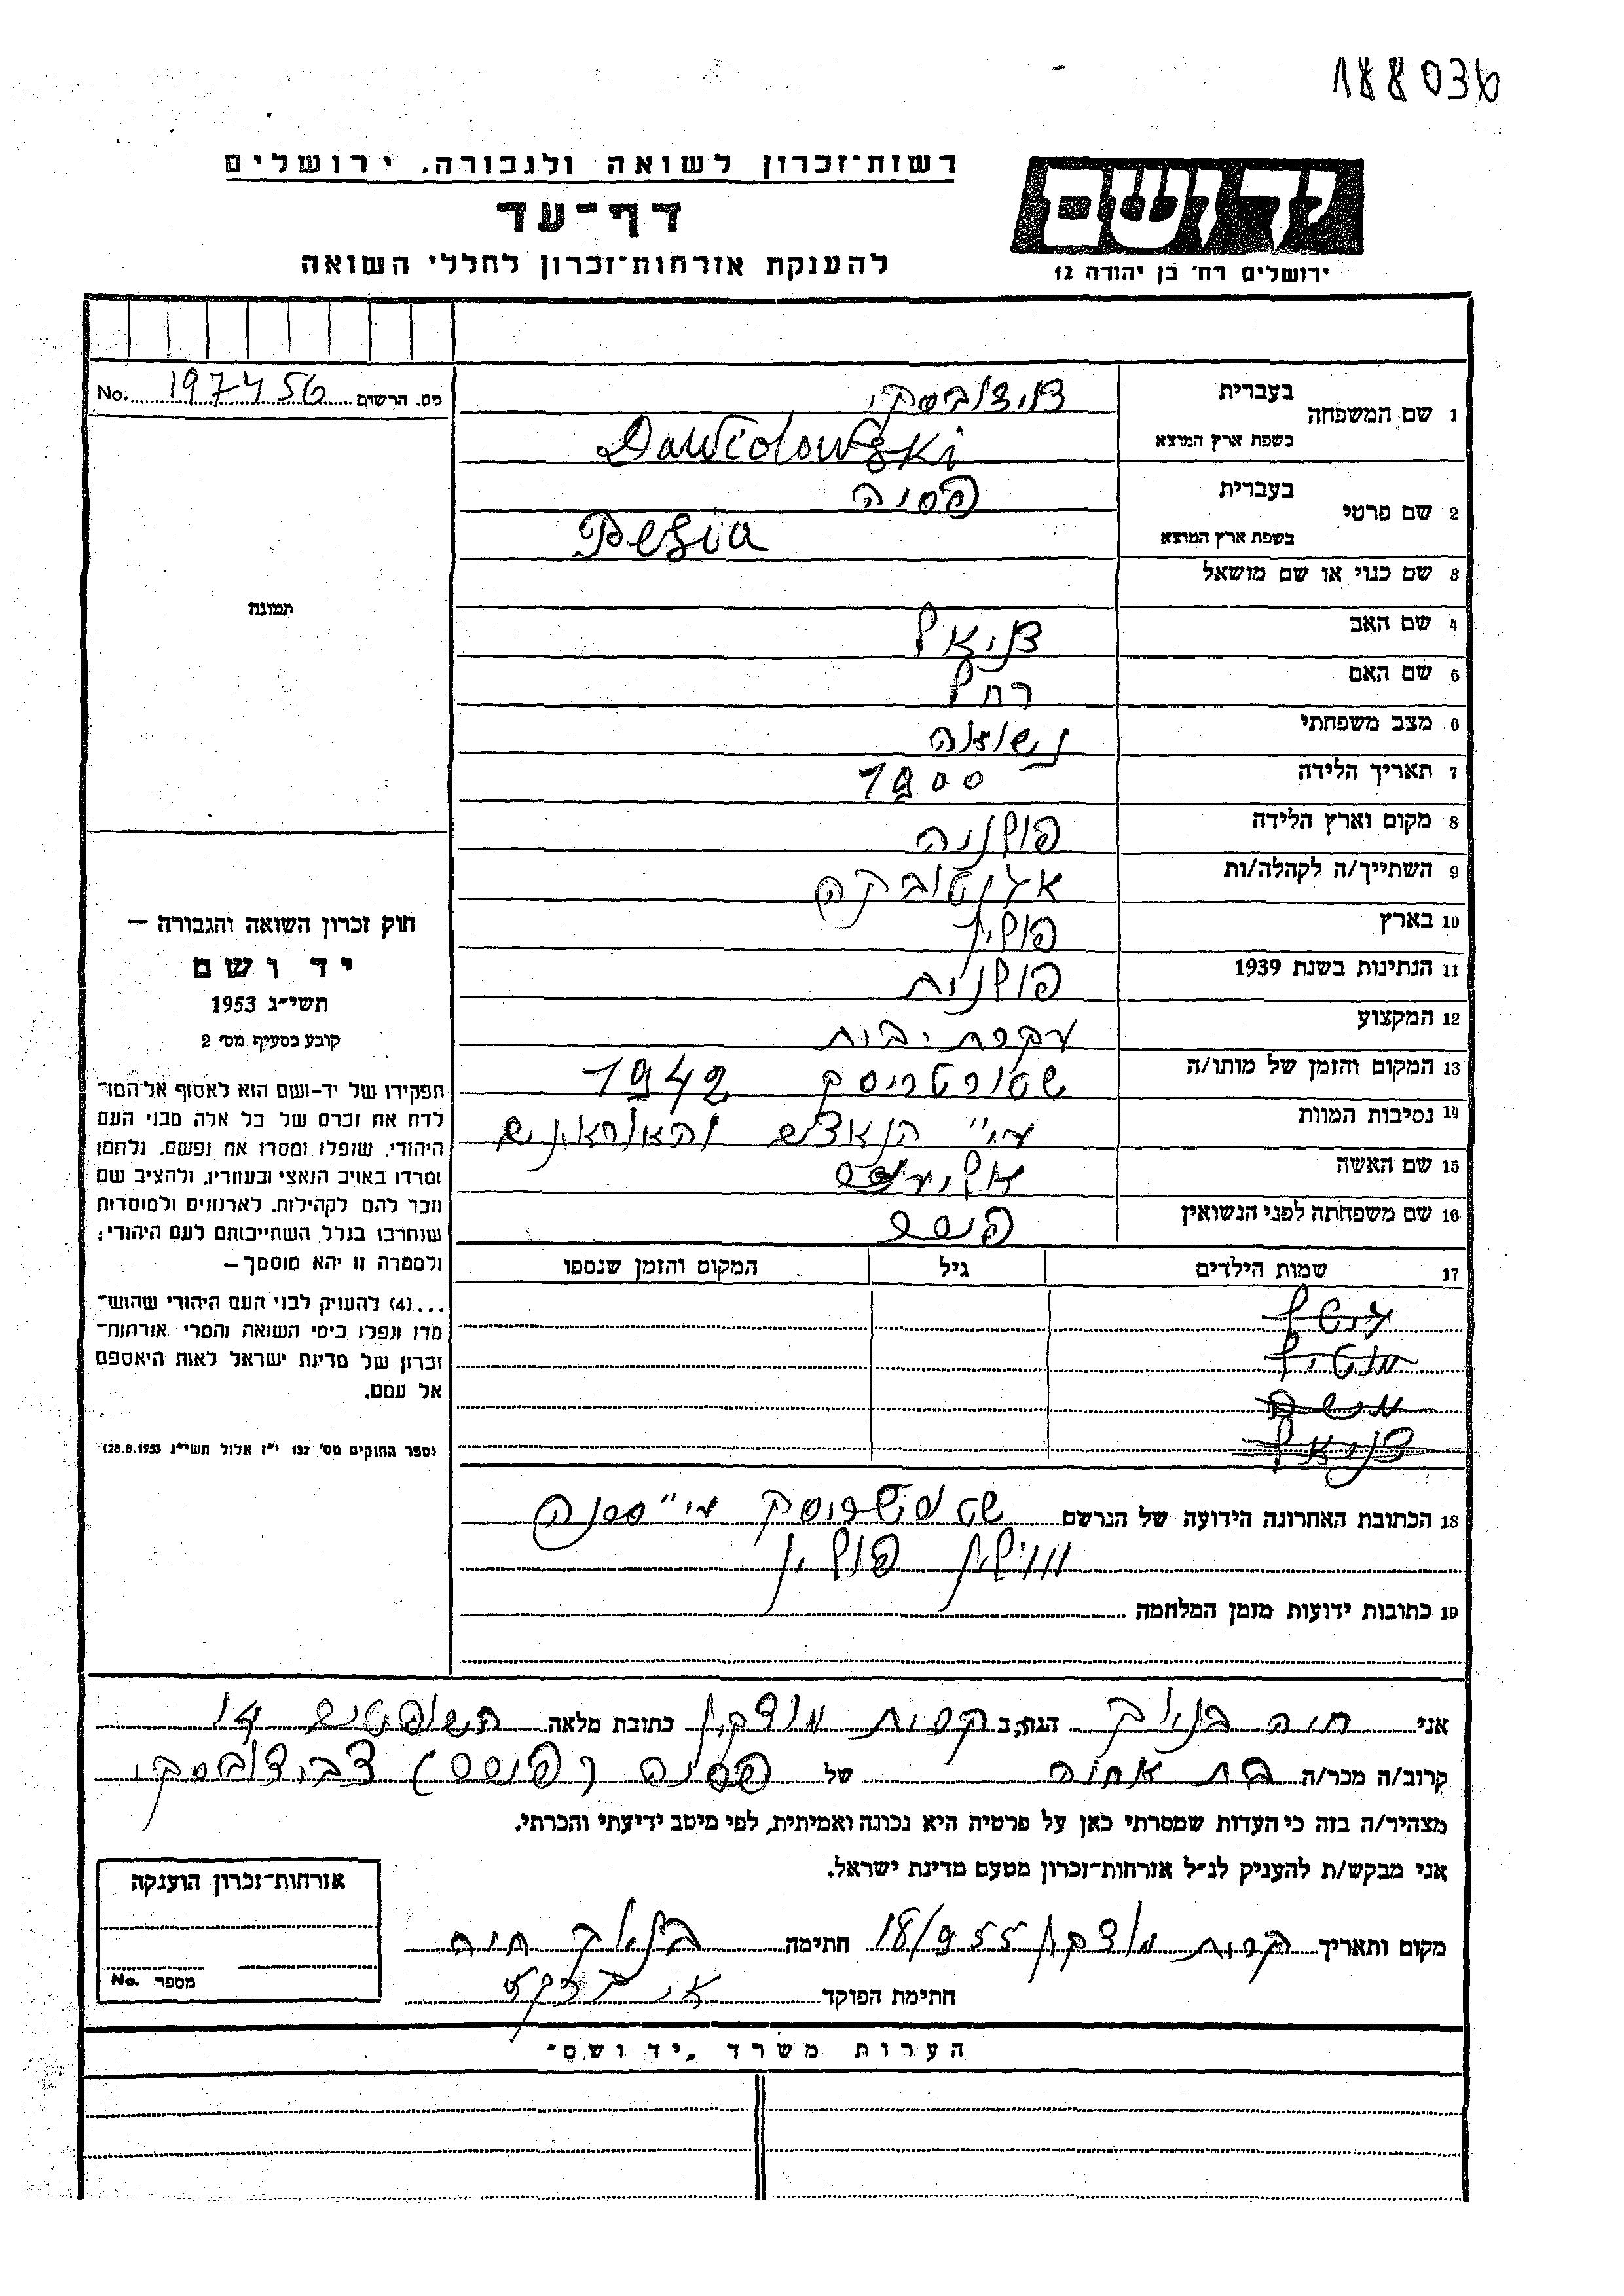 188036
רשות־זכרון לשואה ולגבורה, ירושלים
דף־עד
להענקת אזרחות־זכרון לחללי השואה
יד ושם
ירושלים רח' בן יהודה 12
No. 197456 מס. הרשום
תמונה
חוק זכרון השואה והגבורה —
יד ושם
תשי״ג 1953
קובע בסעיף מס׳ 2
תפקידו של יד-ושם הוא לאסוף אל המו־
לדת את זכרם של כל אלה מבני העם
היהודי, שנפלו ומסרו את נפשם, נלחמו
ומרדו באויב הנאצי ובעוזריו, ולהציב שם
וזכר להם לקהילות, לארגונים ולמוסדות
שנחרבו בגלל השתייכותם לעם היהודי;
ולמטרה זו יהא מוסמך —
...(4) להעניק לבני העם היהודי שהוש־
מדו ונפלו בימי השואה והמרי אזרחות־
זכרון של מדינת ישראל לאות היאספם
אל עמם.
(ספר החוקים מס׳ 132 י״ז אלול תשי״ג 28.8.1953)
1 שם המשפחה בעברית
בשפת ארץ המוצא Dawidowski
2 שם פרטי בעברית פסיה
בשפת ארץ המוצא Pesia
3 שם כנוי או שם מושאל
4 שם האב דניאל
5 שם האם רחל
6 מצב משפחתי נשואה
7 תאריך הלידה 1900
8 מקום וארץ הלידה פולניה
9 השתייך/ה לקהלה/ות
10 בארץ פולין
11 הנתינות בשנת 1939 פולנית
12 המקצוע עקרת יבות
13 המקום והזמן של מותו/ה 1942
14 נסיבות המוות ע״י הנאצים והאוקראינים
15 שם האשה
16 שם משפחתה לפני הנשואין פיסס
17 שמות הילדים גיל המקום והזמן שנספו
דניאל
18 הכתובת האחרונה הידועה של הנרשם
ווילין פולין
19 כתובות ידועות מזמן המלחמה
אני חיה הגר ב קרית מוצקין כתובת מלאה השופטים 14
קרוב/ה מכר/ה בת אחות של פסיה (פיסס) דבידובסקי
מצהיר/ה בזה כי העדות שמסרתי כאן על פרטיה היא נכונה ואמיתית, לפי מיטב ידיעתי והכרתי.
אני מבקש/ת להעניק לנ״ל אזרחות־זכרון מטעם מדינת ישראל.
מקום ותאריך קרית מוצקין 18/9 55 חתימה חיה
חתימת הפוקד
אזרחות־זכרון הוענקה
No. מספר
הערות משרד „יד ושם״